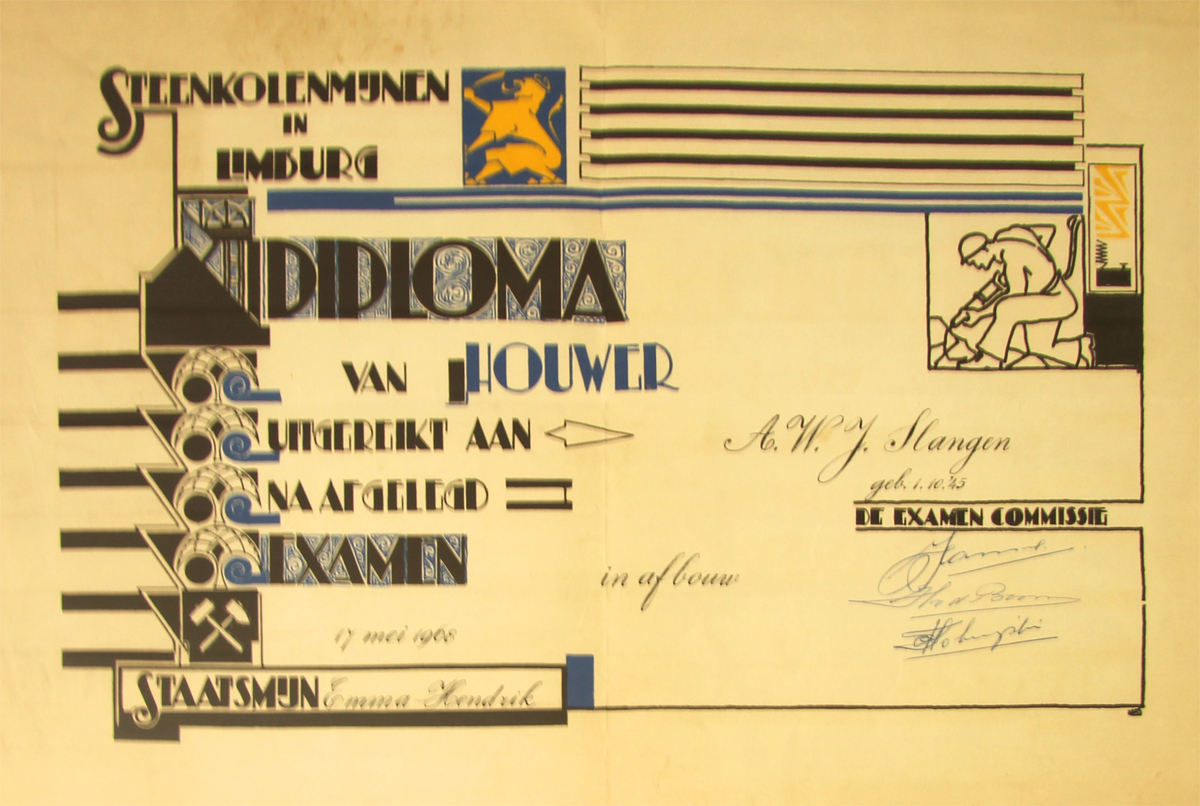 STEENKOLENMIJNEN
IN
LIMBURG
DIPLOMA
VAN HOUWER
UITGEREIKT AAN A. W. J. Slangen
geb. 1.10.'45
NA AFGELEGD
DE EXAMEN COMMISSIE
EXAMEN in afbouw
17 mei 1968
STAATSMIJN Emma Hendrik